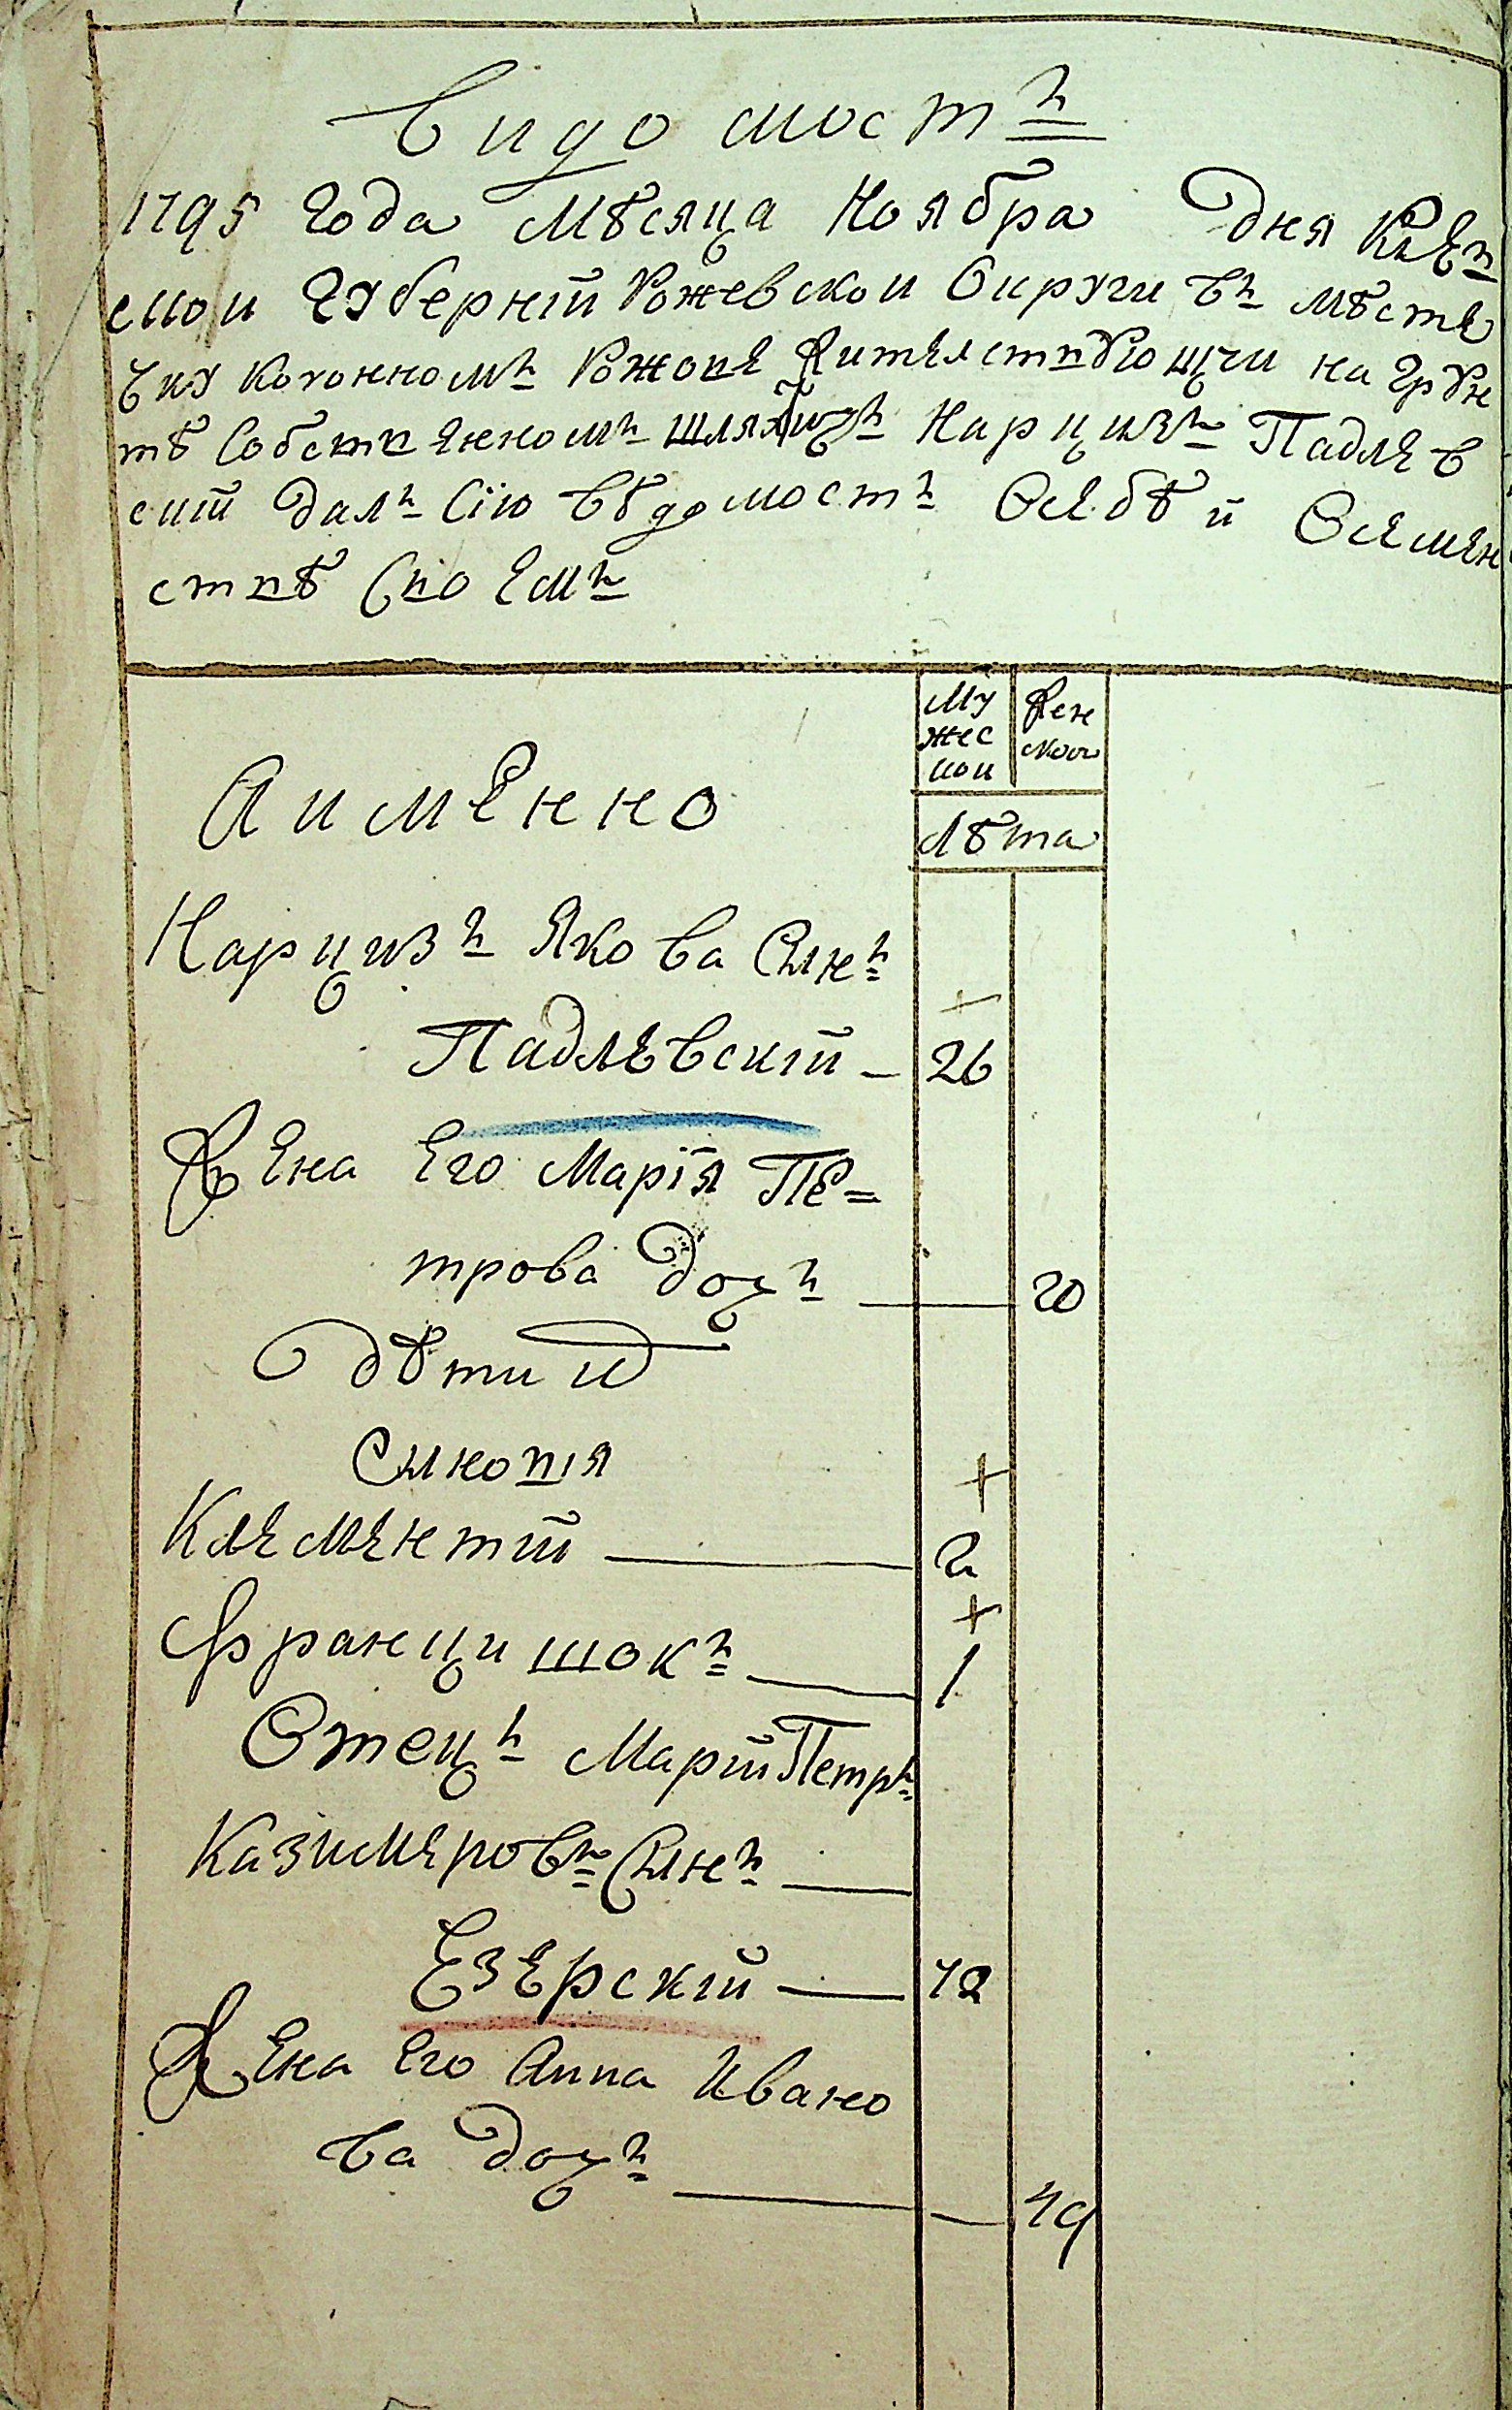 Видомость
1795 Года Мѣсяца Ноября Дня Киев
скои Губерніи Рожевскои Округи въ мѣсте
чку коронномъ Рожове Жителствующчи на Грун
тѣ Собственномъ шляхтичъ Нарцизъ Падлев
скій далъ Сію вѣдомость О себѣ и О семен
ствѣ Своемъ
Мужескои
Женскои
А именно
Лѣта
Нарцизъ Якова Сынъ
Падлевскій — 26
Жена Его Марія Пе=
трова дочъ — 20
дѣти и
Сыновія
Клементій — 2
Францишокъ — 1
Отецъ Маріи Петръ
Казимеровъ Сынъ —
Езерскій — 72
Жена Его Анна Ивано
ва дочъ — 49